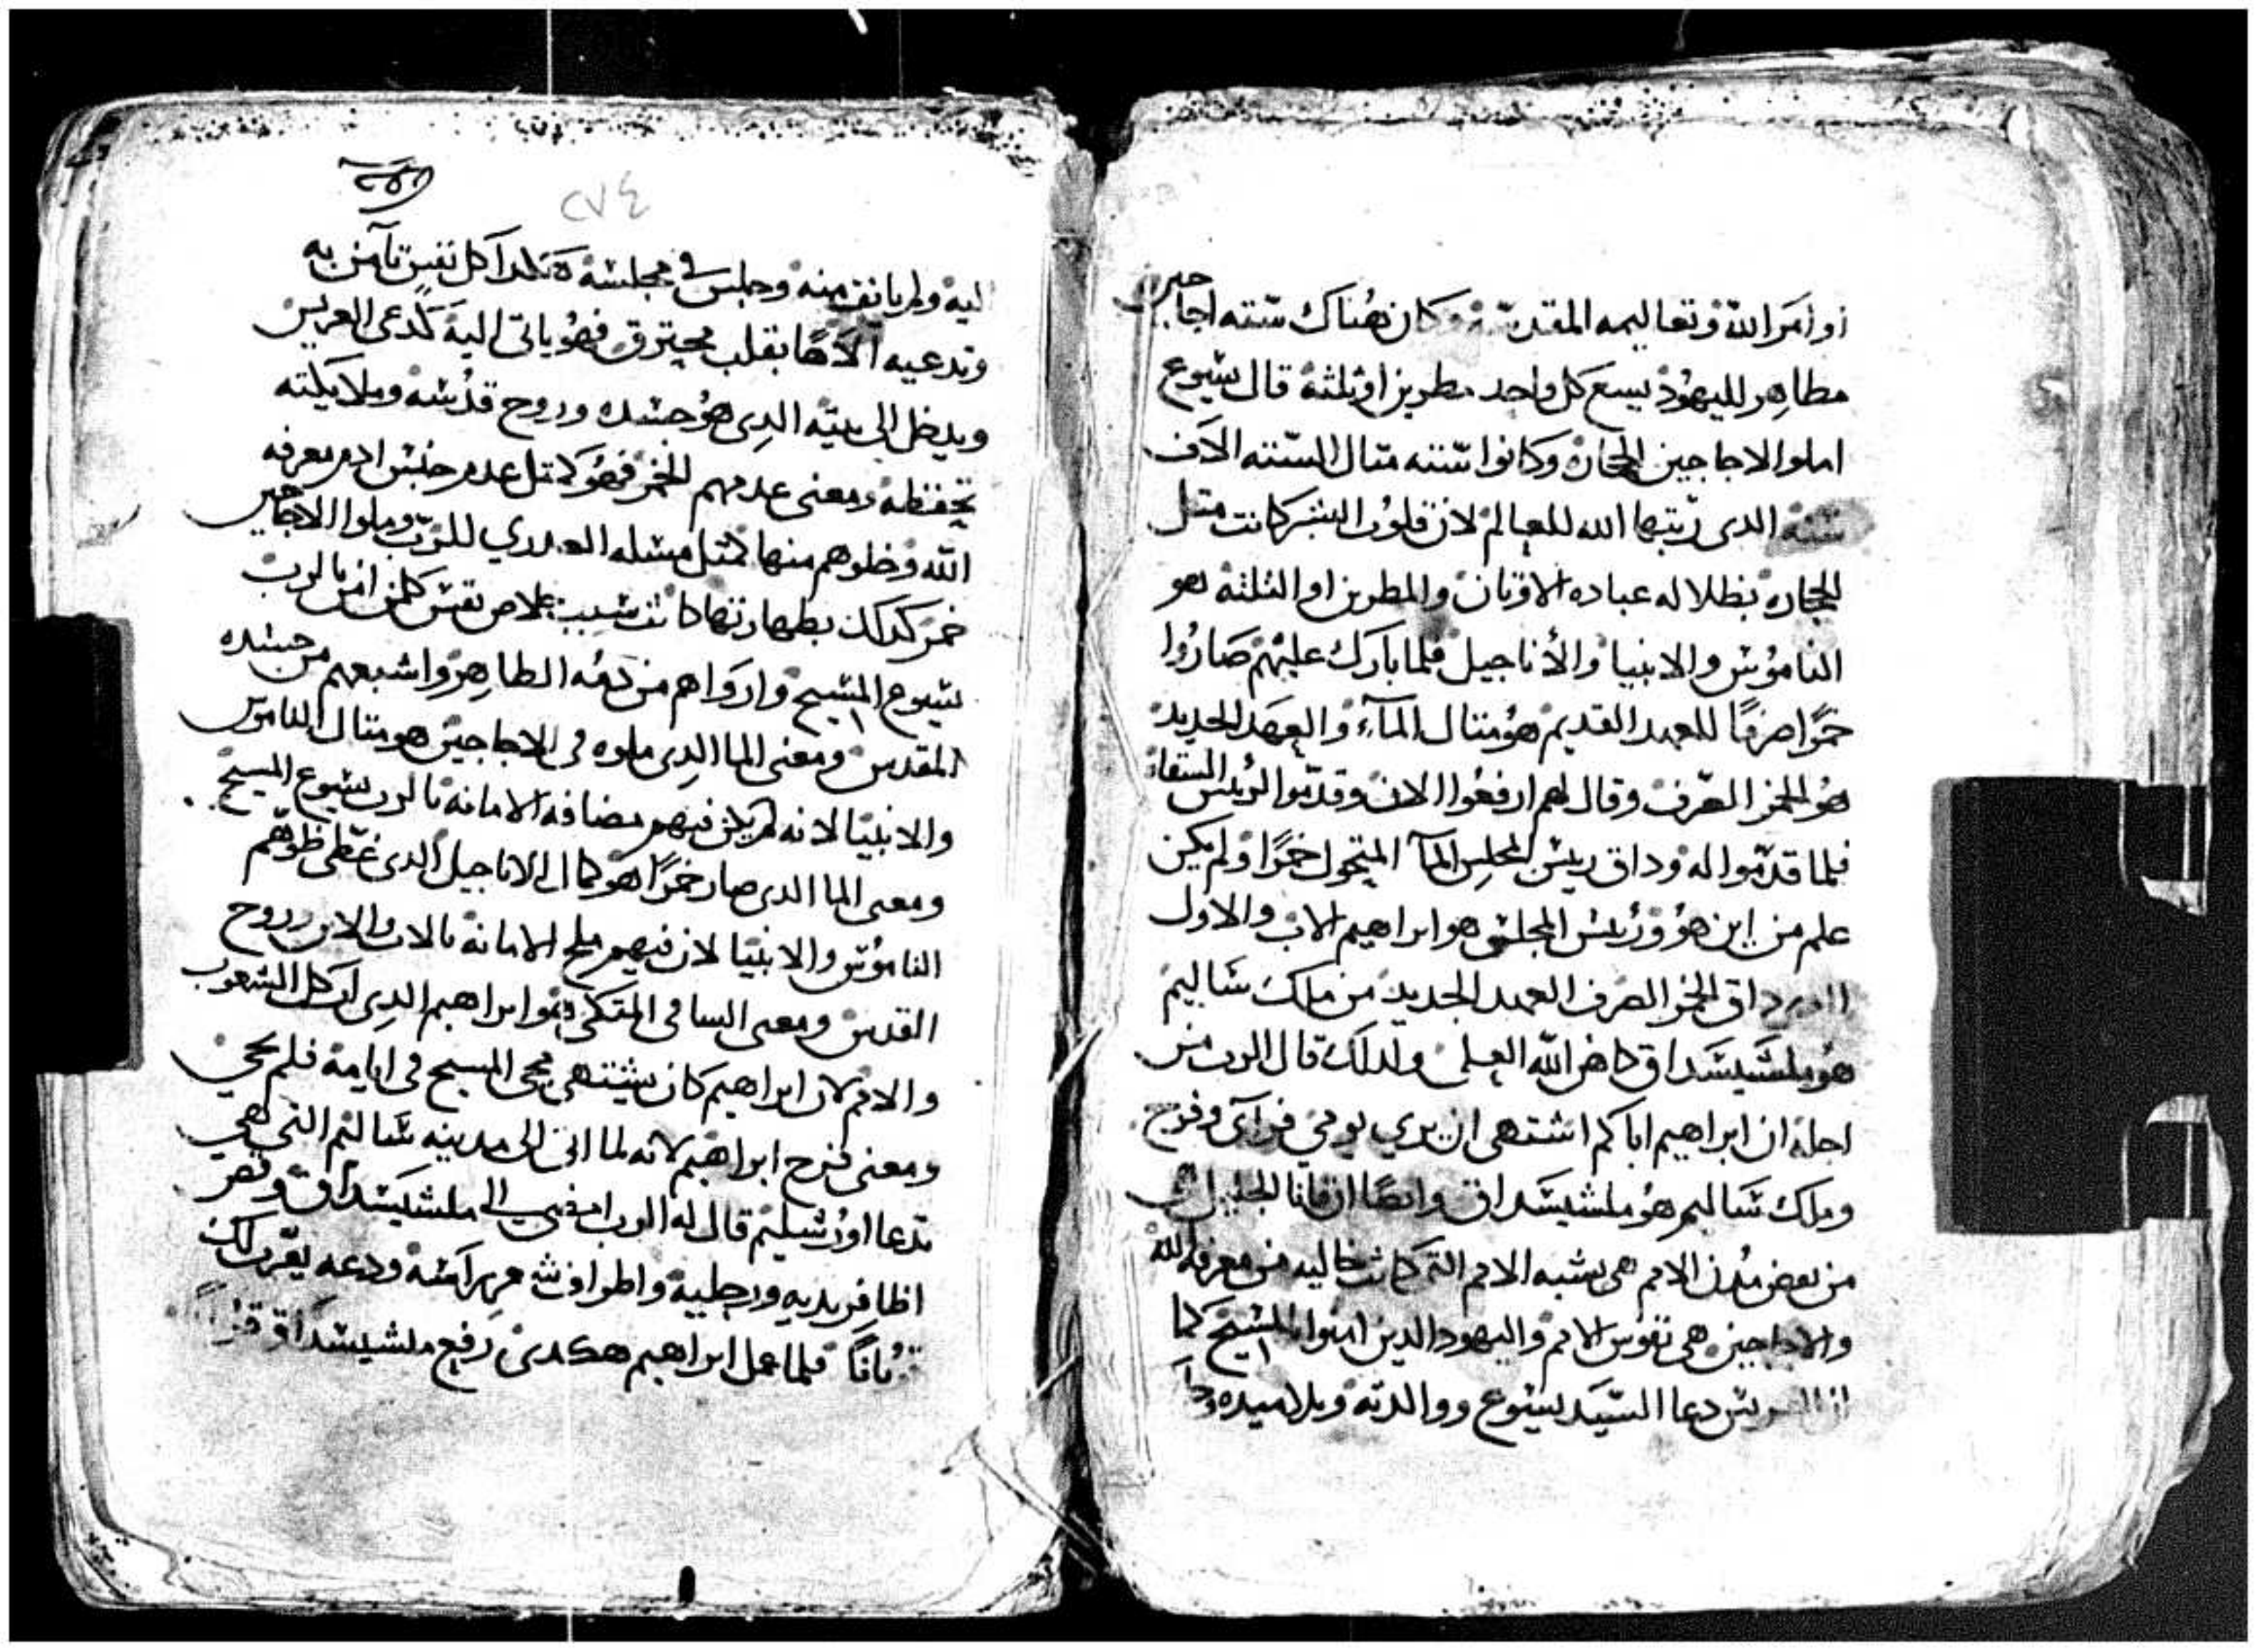 اوامر الله وتعاليمه المقدسة وكان هناك ستته اجاجين
مطاهر لليهود يسع كل واحد مطرين او ثلثة قال يسوع
املوا الاجاجين الحجاره وكانوا ستته متال الستته الاف
سنة الدى رتبها الله للعالم لان قلوب البشر كانت متل
الحجاره بظلاله عباده الاوتان والمطرين او الثلثة هو
الناموس والانبيا والأناجيل فلما بارك عليهم صاروا
خمرًا صرفًا للعهد القديم هو متال المآء والعهد الجديد
هو الخمر الصرف وقال لهم ارفعوا الان وقدموا لرييس السقاه
فلما قدموا له وداق رييس المجلس المآ المتحول خمرًا ولم يكن
علم من اين هو ورييس المجلس هو ابراهيم الاب والاول
داق الخمر الصرف العهد الجديد من ملك شاليم
هو ملشيسداق كاهن الله العلى ولدلك قال الرب من
اجله ان ابراهيم اباكم اشتهى ان يري يومي فرآى وفرح
وملك شاليم هو ملشيسداق وايضًا ان قانا الجليل
من بعض مدن الامم هى بشبه الامم التى كانت خاليه من معرفه الله
والاجاجين هى نفوس الامم واليهود الدين امنوا بالمسيح كما
ان العريس دعا السيد يسوع ووالدته وتلاميده
٢٧٤
اليه ولم يانف منه وجلس في مجلسه هكدا كل نفس تآمن به
وتدعيه الاهًا بقلب محترق فهو ياتى اليه كدعى العريس
ويدخل الى بيته الدِى هو جسده وروح قدسه وملايكته
تحفظه ومعنى عدمهم الخمر فهو كمتل عدم جنس ادم معرفه
الله وخلوهم منها كمثل مسله العدري للرب وملوا الاجاجين
خمر كدلك بطهارتها كانت سبب خلاص نفس كلمن امن بالرب
يسوع المسيح وارواهم من دمه الطاهر واشبعهم من جسده
المقدس ومعنى الما الدِى ملوه فى الاجاجين هو متال الناموس
والانبيا لانه لم يكن فيهم مضافه الامانة بالرب يسوع المسيح
ومعنى الما الدى صار خمرًا هو كمال الاناجيل الدى غطى
الناموس والانبيا لان فيهم ملح الامانة بالاب والابن وروح
القدس ومعنى الساقى المتكى هو ابراهيم الدِى اب كل الشعوب
والامم لان ابراهيم كان يشتهى مجى المسيح فى ايامه فلم يجى
ومعنى فرح ابراهيم لانه لما اتى الى مدينه شاليم التى هى
تدعا اورشليم قال له الرب امضى الى ملشيسداق وقص
اظافر يديه ورجليه واطراف شعر راسه ودعه يقرب لك
قربانًا فلما عمل ابراهيم هكدى رفع ملشيسداق